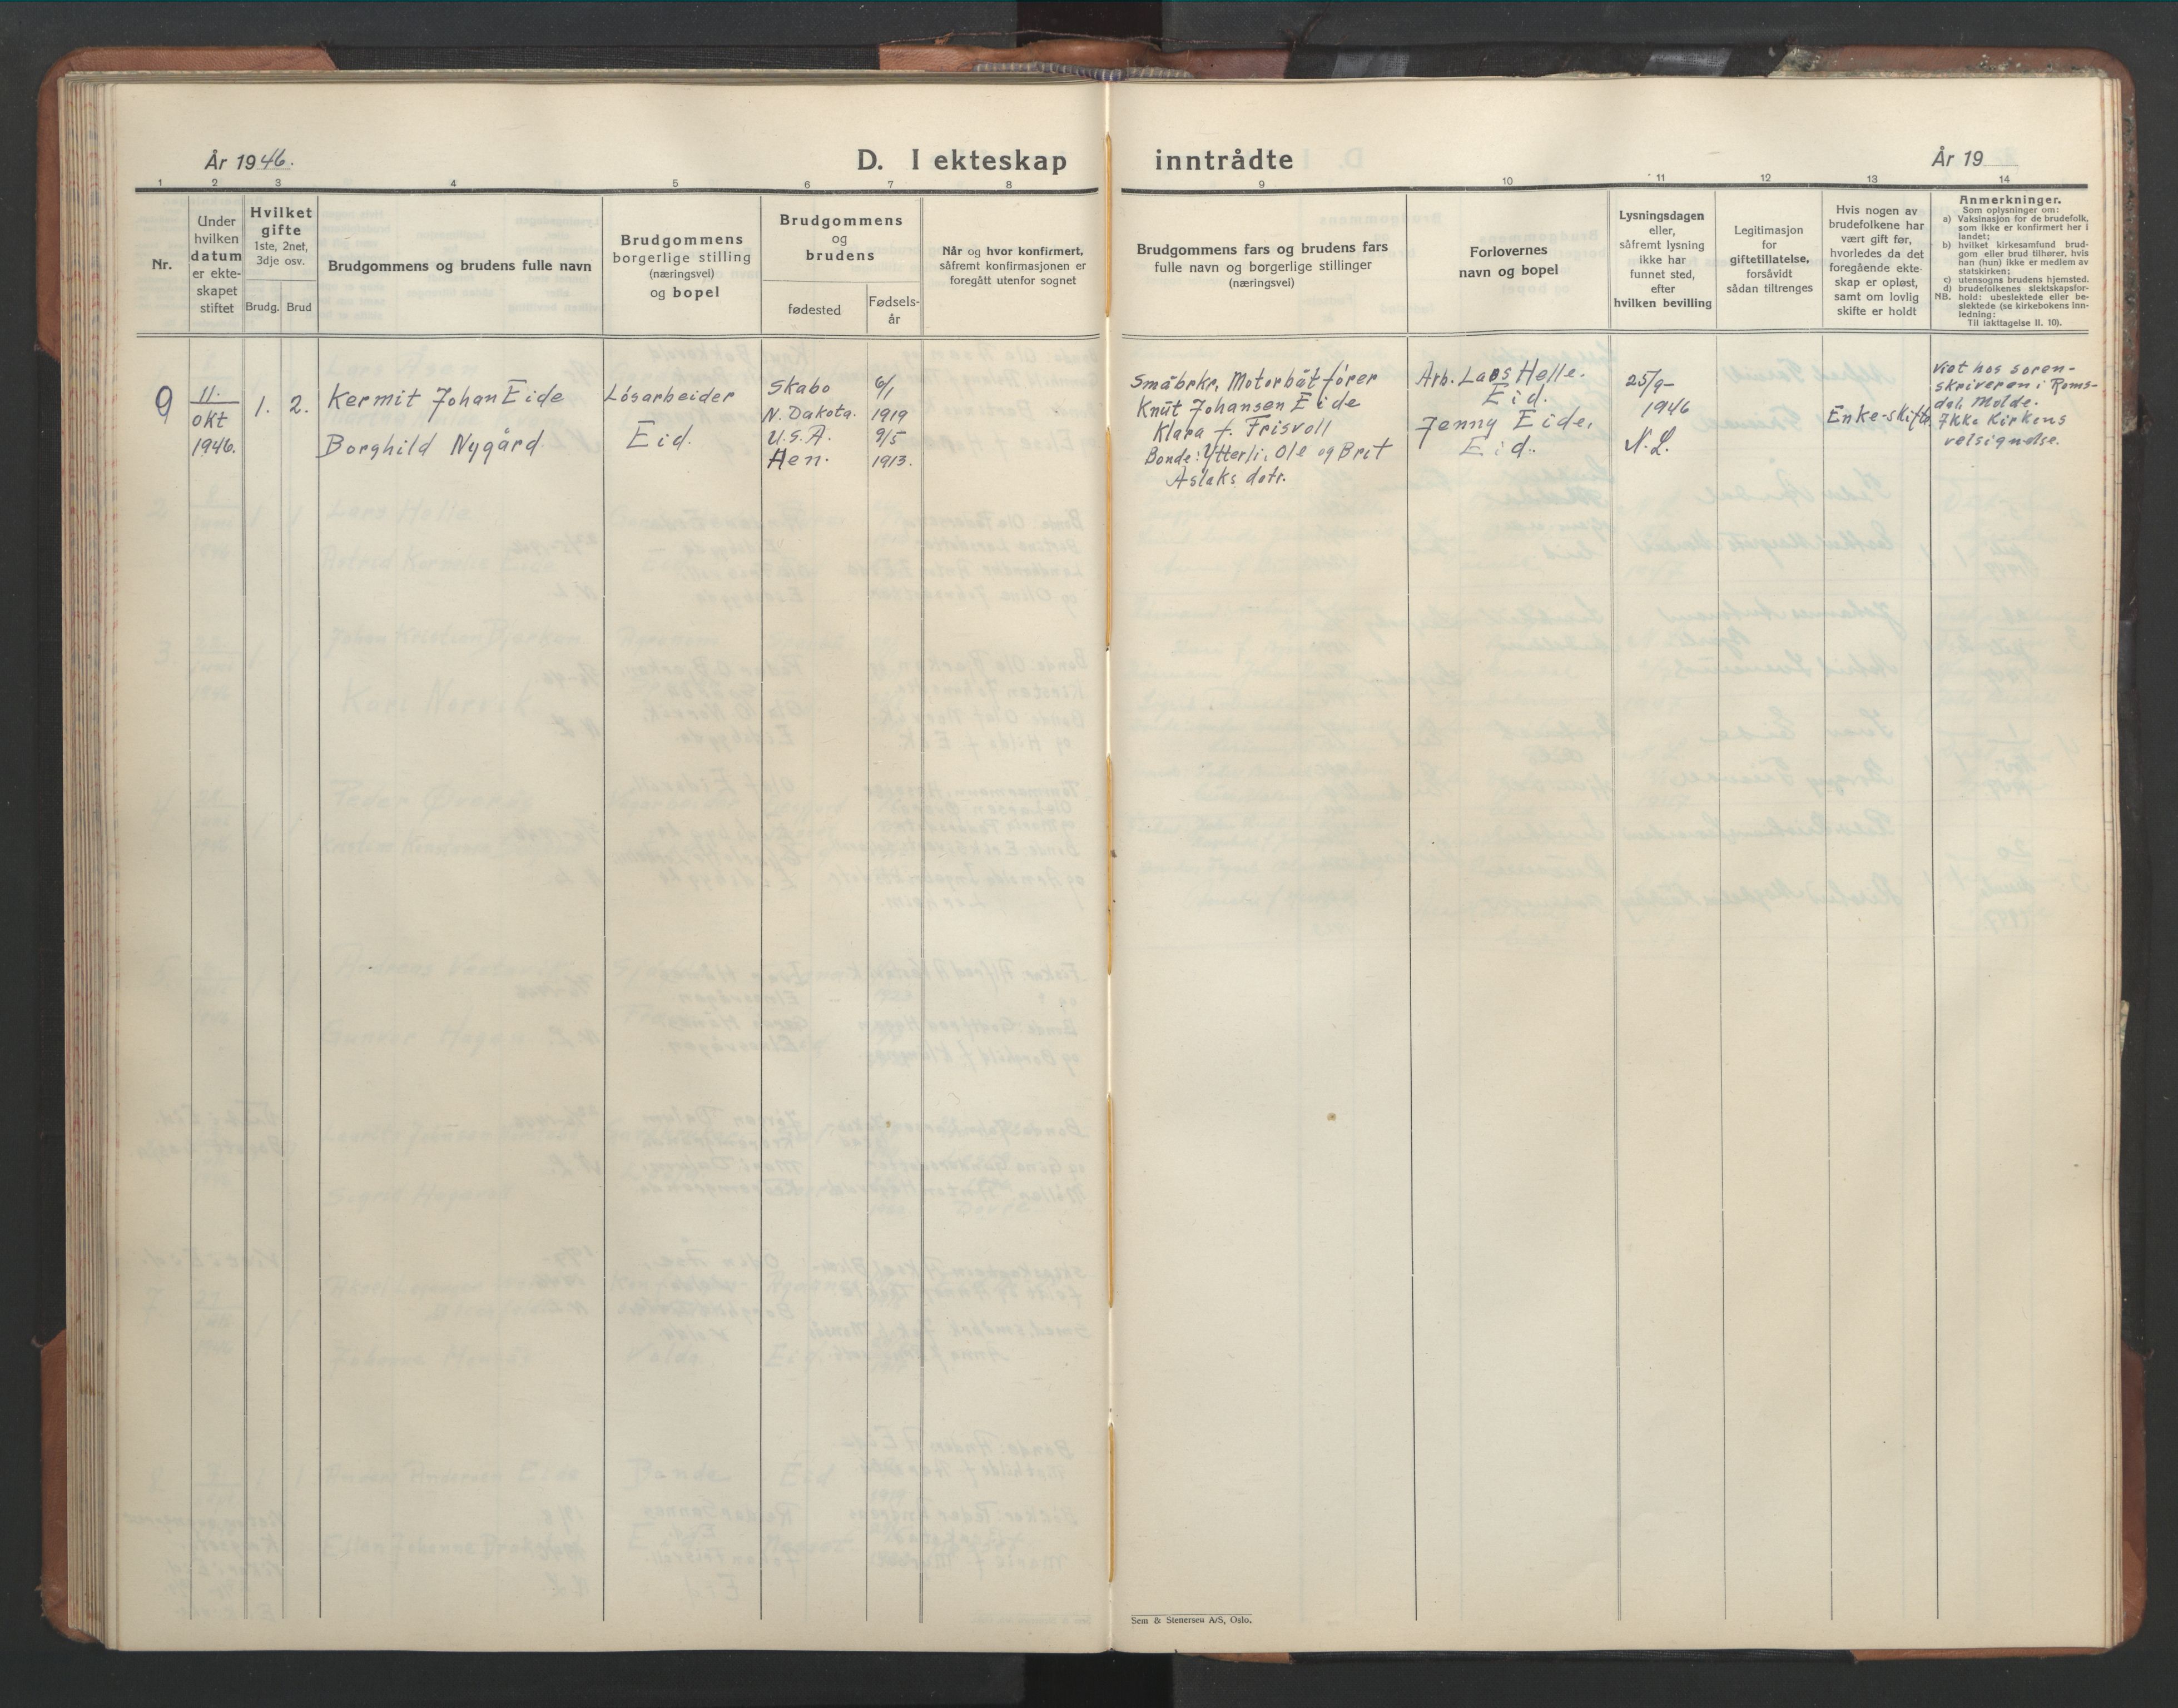 År 1946.
D. I ekteskap inntrådte
År 19
1 2 3 4 5 6 7 8 9 10 11 12 13 14
Nr.
Under
hvilken
datum
er ekte-
skapet
stiftet
Hvilket
gifte
1ste, 2net,
3dje osv.
Brudg. Brud
Brudgommens og brudens fulle navn
Brudgommens
borgerlige stilling
(næringsvei)
og bopel
Brudgommens
og
brudens
fødested
Fødsels-
år
Når og hvor konfirmert,
såfremt konfirmasjonen er
foregått utenfor sognet
Brudgommens fars og brudens fars
fulle navn og borgerlige stillinger
(næringsvei)
Forlovernes
navn og bopel
Lysningsdagen
eller,
såfremt lysning
ikke har
funnet sted,
efter
hvilken bevilling
Legitimasjon
for
giftetillatelse,
forsåvidt
sådan tiltrenges
Hvis nogen av
brudefolkene har
vært gift før,
hvorledes da det
foregående ekte-
skap er opløst,
samt om lovlig
skifte er holdt
Anmerkninger.
Som oplysninger om:
a) Vaksinasjon for de brudefolk,
som ikke er konfirmert her i
landet;
b) hvilket kirkesamfund brud-
gom eller brud tilhører, hvis
han (hun) ikke er medlem av
statskirken;
c) utensogns brudens hjemsted.
d) brudefolkenes slektskapsfor-
NB. hold: ubeslektede eller be-
slektede (se kirkebokens inn-
ledning:
Til iakttagelse II. 10).
9
11.
okt
1946.
1. 2.
Kermit Johan Eide
Borghild Nygård
Løsarbeider
Eid.
Skabo
N. Dakota.
U.S.A.
Hen.
6/1
1919
9/5
1913.
Småbrkr, Motorbåtfører
Knut Johansen Eide
Klara f. Frisvoll
Bonde: Ytterli, Ole og Brit
Aslaks dotr.
Arb. Lars Helle.
Eid.
Jenny Eide,
Eid.
25/9-
1946
N.L.
Enke-skifte
Viet hos soren-
skriveren i Roms-
dal, Molde.
Ikke Kirkens
velsignelse.
Sem & Stenersen A/S, Oslo.